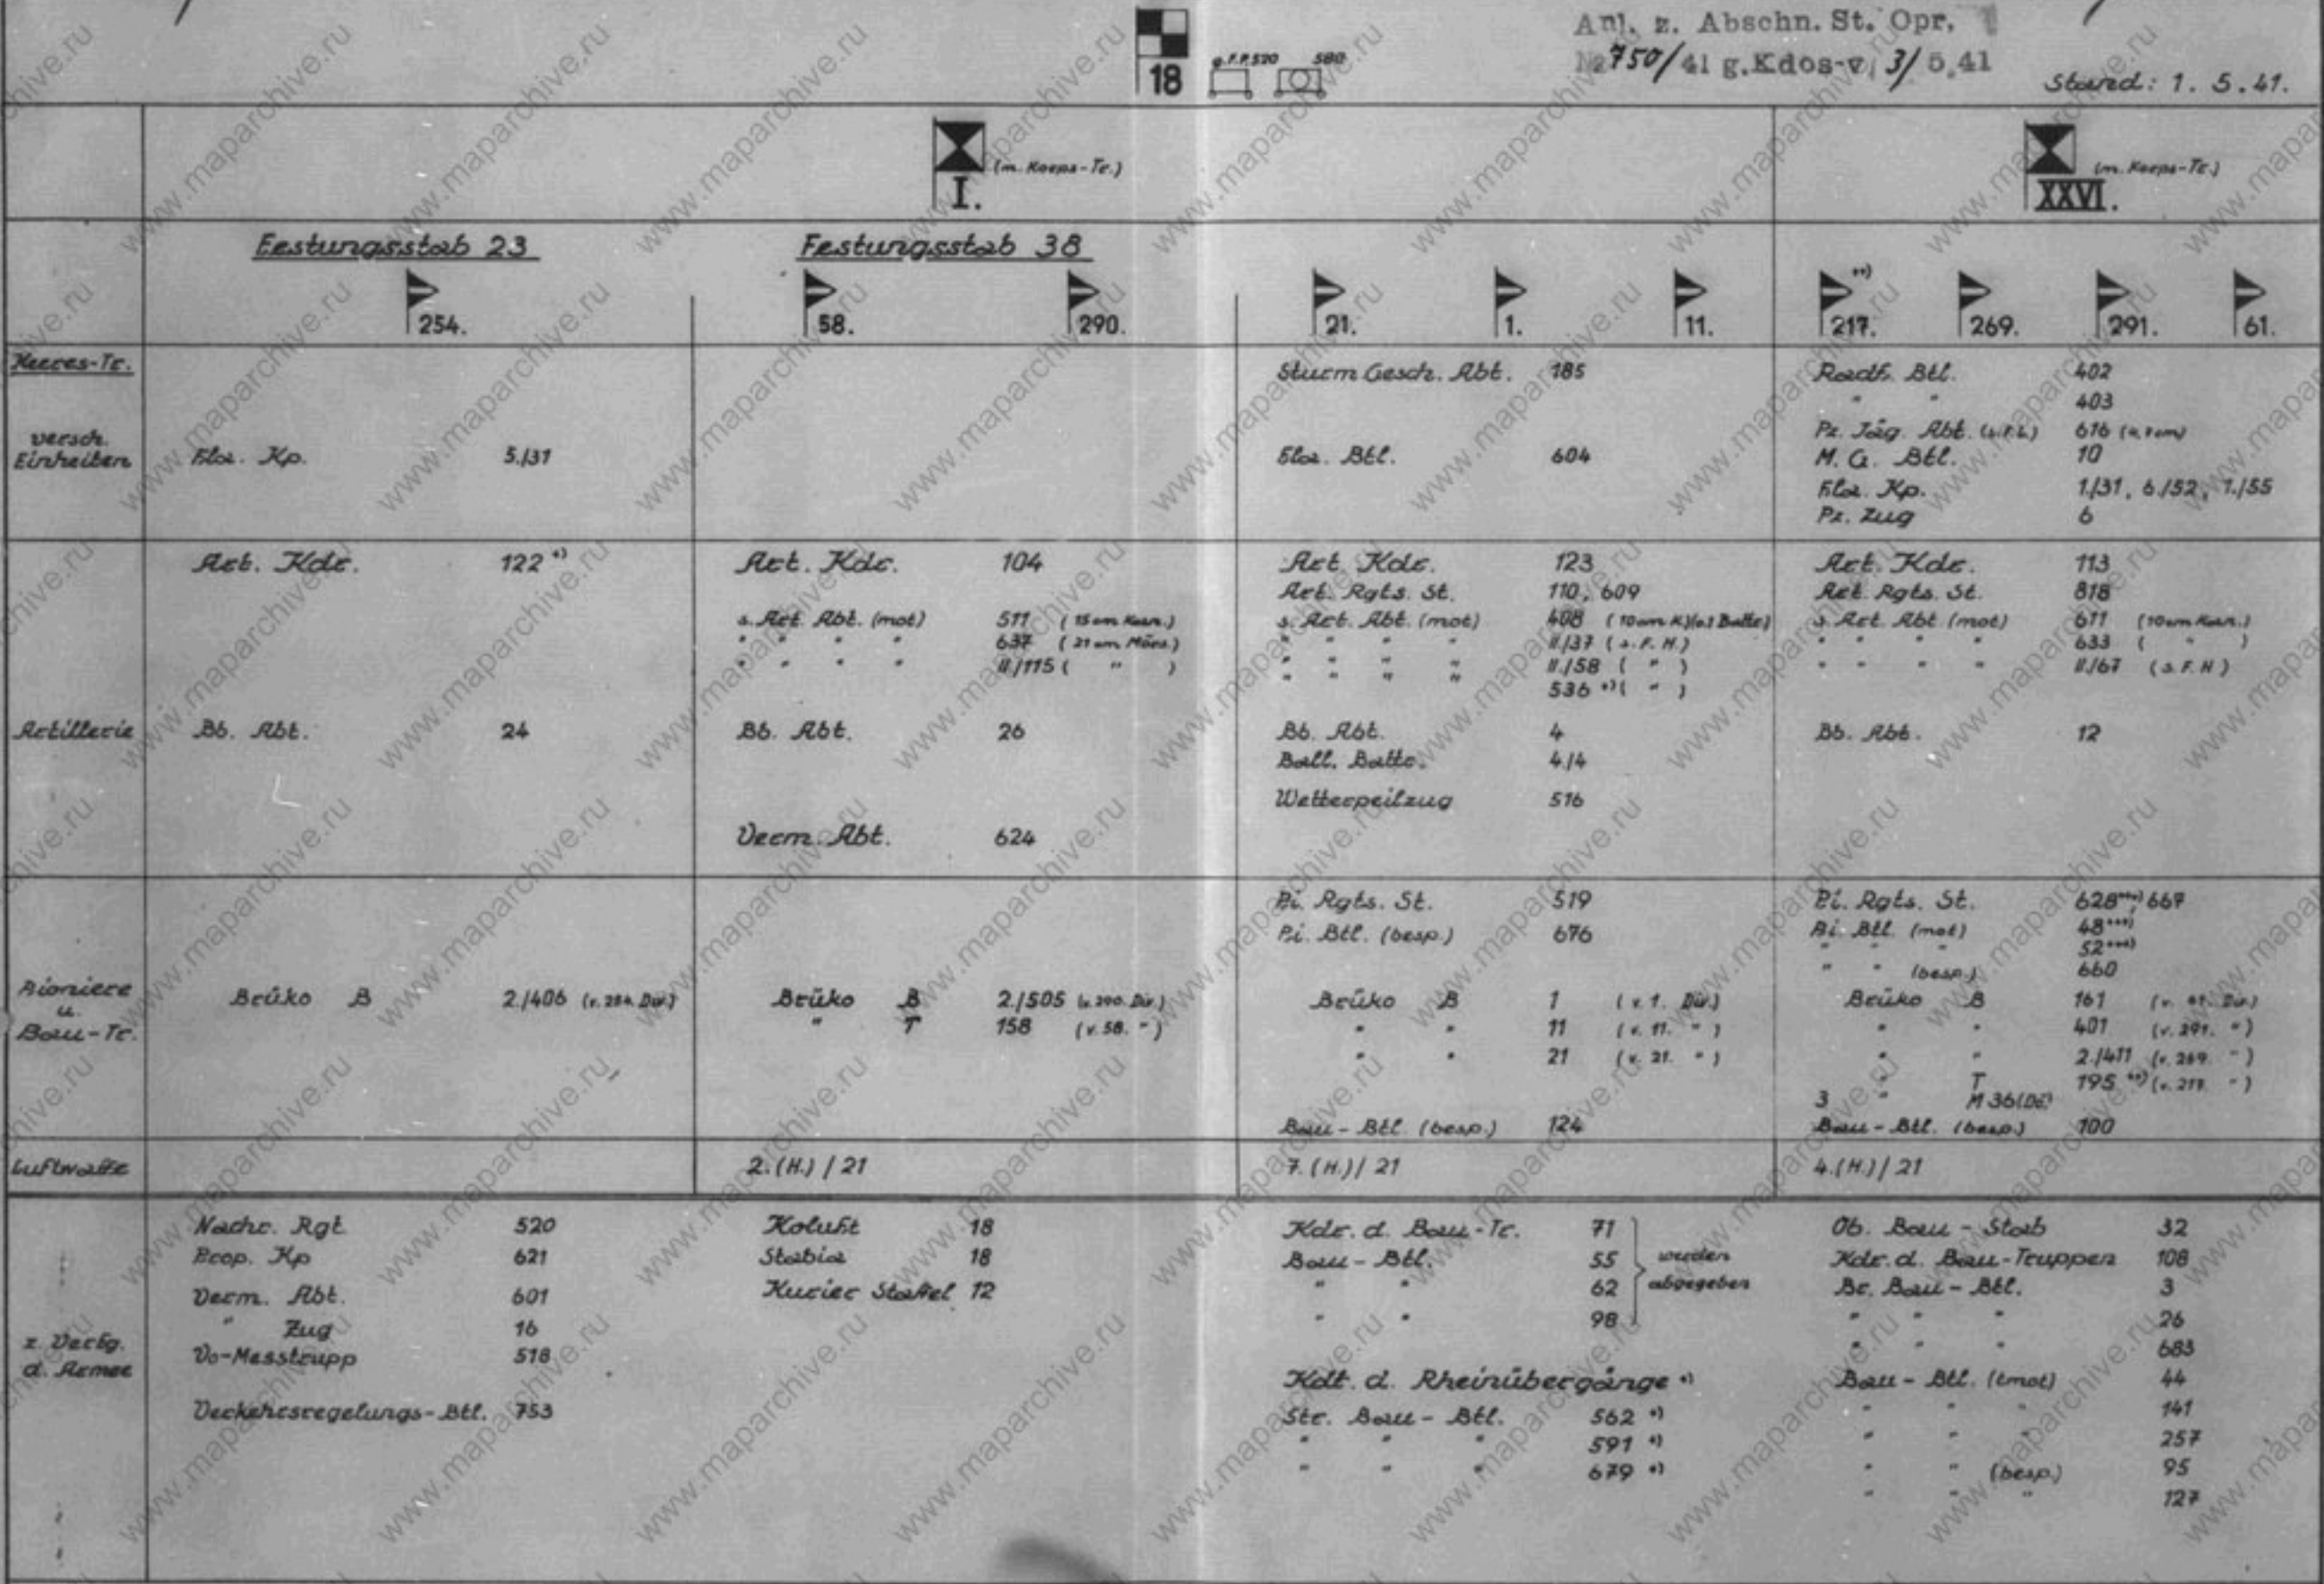 Anl. z. Abschn. St. Opr.
№ 750/41 g.Kdos-v. 3/5.41
Stand: 1. 5. 41.
18
g.F.P. 520 580
I. (m. Korps-Tr.)
XXVI. (m. Korps-Tr.)
Festungsstab 23 Festungsstab 38
254. 58. 290. 21. 1. 11. 217. **) 269. 291. 61.
Heeres-Tr.
versch. Einheiten
Fla. Kp. 5./31
Sturm Gesch. Abt. 185
Fla. Btl. 604
Radf. Btl. 402
" " 403
Pz. Jäg. Abt. (s.F.L.) 616 (4,7cm)
M. G. Btl. 10
Fla. Kp. 1./31, 6./52, 1./55
Pz. Zug 6
Artillerie
Art. Kdr. 122 *)
Bb. Abt. 24
Art. Kdr. 104
s. Art. Abt. (mot) 511 (15 cm Kan.)
" " " " 637 (21 cm Mörs.)
" " " " II./115 ( " )
Bb. Abt. 26
Verm. Abt. 624
Art. Kdr. 123
Art. Rgts. St. 110, 609
s. Art. Abt. (mot) 408 (10cm K)(o.1 Battr)
" " " " II./37 (s. F. H.)
" " " " II./58 ( " )
" " " " 536 *) ( " )
Bb. Abt. 4
Ball. Battr. 4./4
Wetterpeilzug 516
Art. Kdr. 113
Art. Rgts. St. 818
s. Art. Abt. (mot) 611 (10cm Kan.)
" " " " 633 ( " )
" " " " II./67 (s. F. H)
Bb. Abt. 12
Pioniere
u.
Bau-Tr.
Brüko B 2./406 (v. 254. Div.)
Brüko B 2./505 (v. 290. Div.)
" T 158 (v. 58. " )
Pi. Rgts. St. 519
Pi. Btl. (besp.) 676
Brüko B 1 (v. 1. Div.)
" " 11 (v. 11. " )
" " 21 (v. 21. " )
Bau-Btl. (besp.) 124
Pi. Rgts. St. 628 ***), 667
Pi. Btl. (mot) 48 ***)
" " " 52 ***)
" " (besp.) 660
Brüko B 161 (v. 61. Div.)
" " 401 (v. 291. " )
" " 2./411 (v. 269. " )
" T 195 **) (v. 217. " )
3 " M 36 (Dt.)
Bau-Btl. (besp.) 100
Luftwaffe
2.(H.)/21
7.(H.)/21
4.(H.)/21
z. Verfg.
d. Armee
Nachr. Rgt. 520
Prop. Kp 621
Verm. Abt. 601
" Zug 16
Vo-Messtrupp 518
Verkehrsregelungs-Btl. 753
Koluft 18
Stabia 18
Kurier Staffel 12
Kdr. d. Bau-Tr. 71
Bau-Btl. 55
" " 62
" " 98
werden
abgegeben
Kdt. d. Rheinübergänge *)
Str. Bau-Btl. 562 *)
" " " 591 *)
" " " 679 *)
Ob. Bau-Stab 32
Kdr. d. Bau-Truppen 108
Br. Bau-Btl. 3
" " " 26
" " " 683
Bau-Btl. (tmot) 44
" " " 141
" " " 257
" " (besp.) 95
" " " 127
www.maparchive.ru